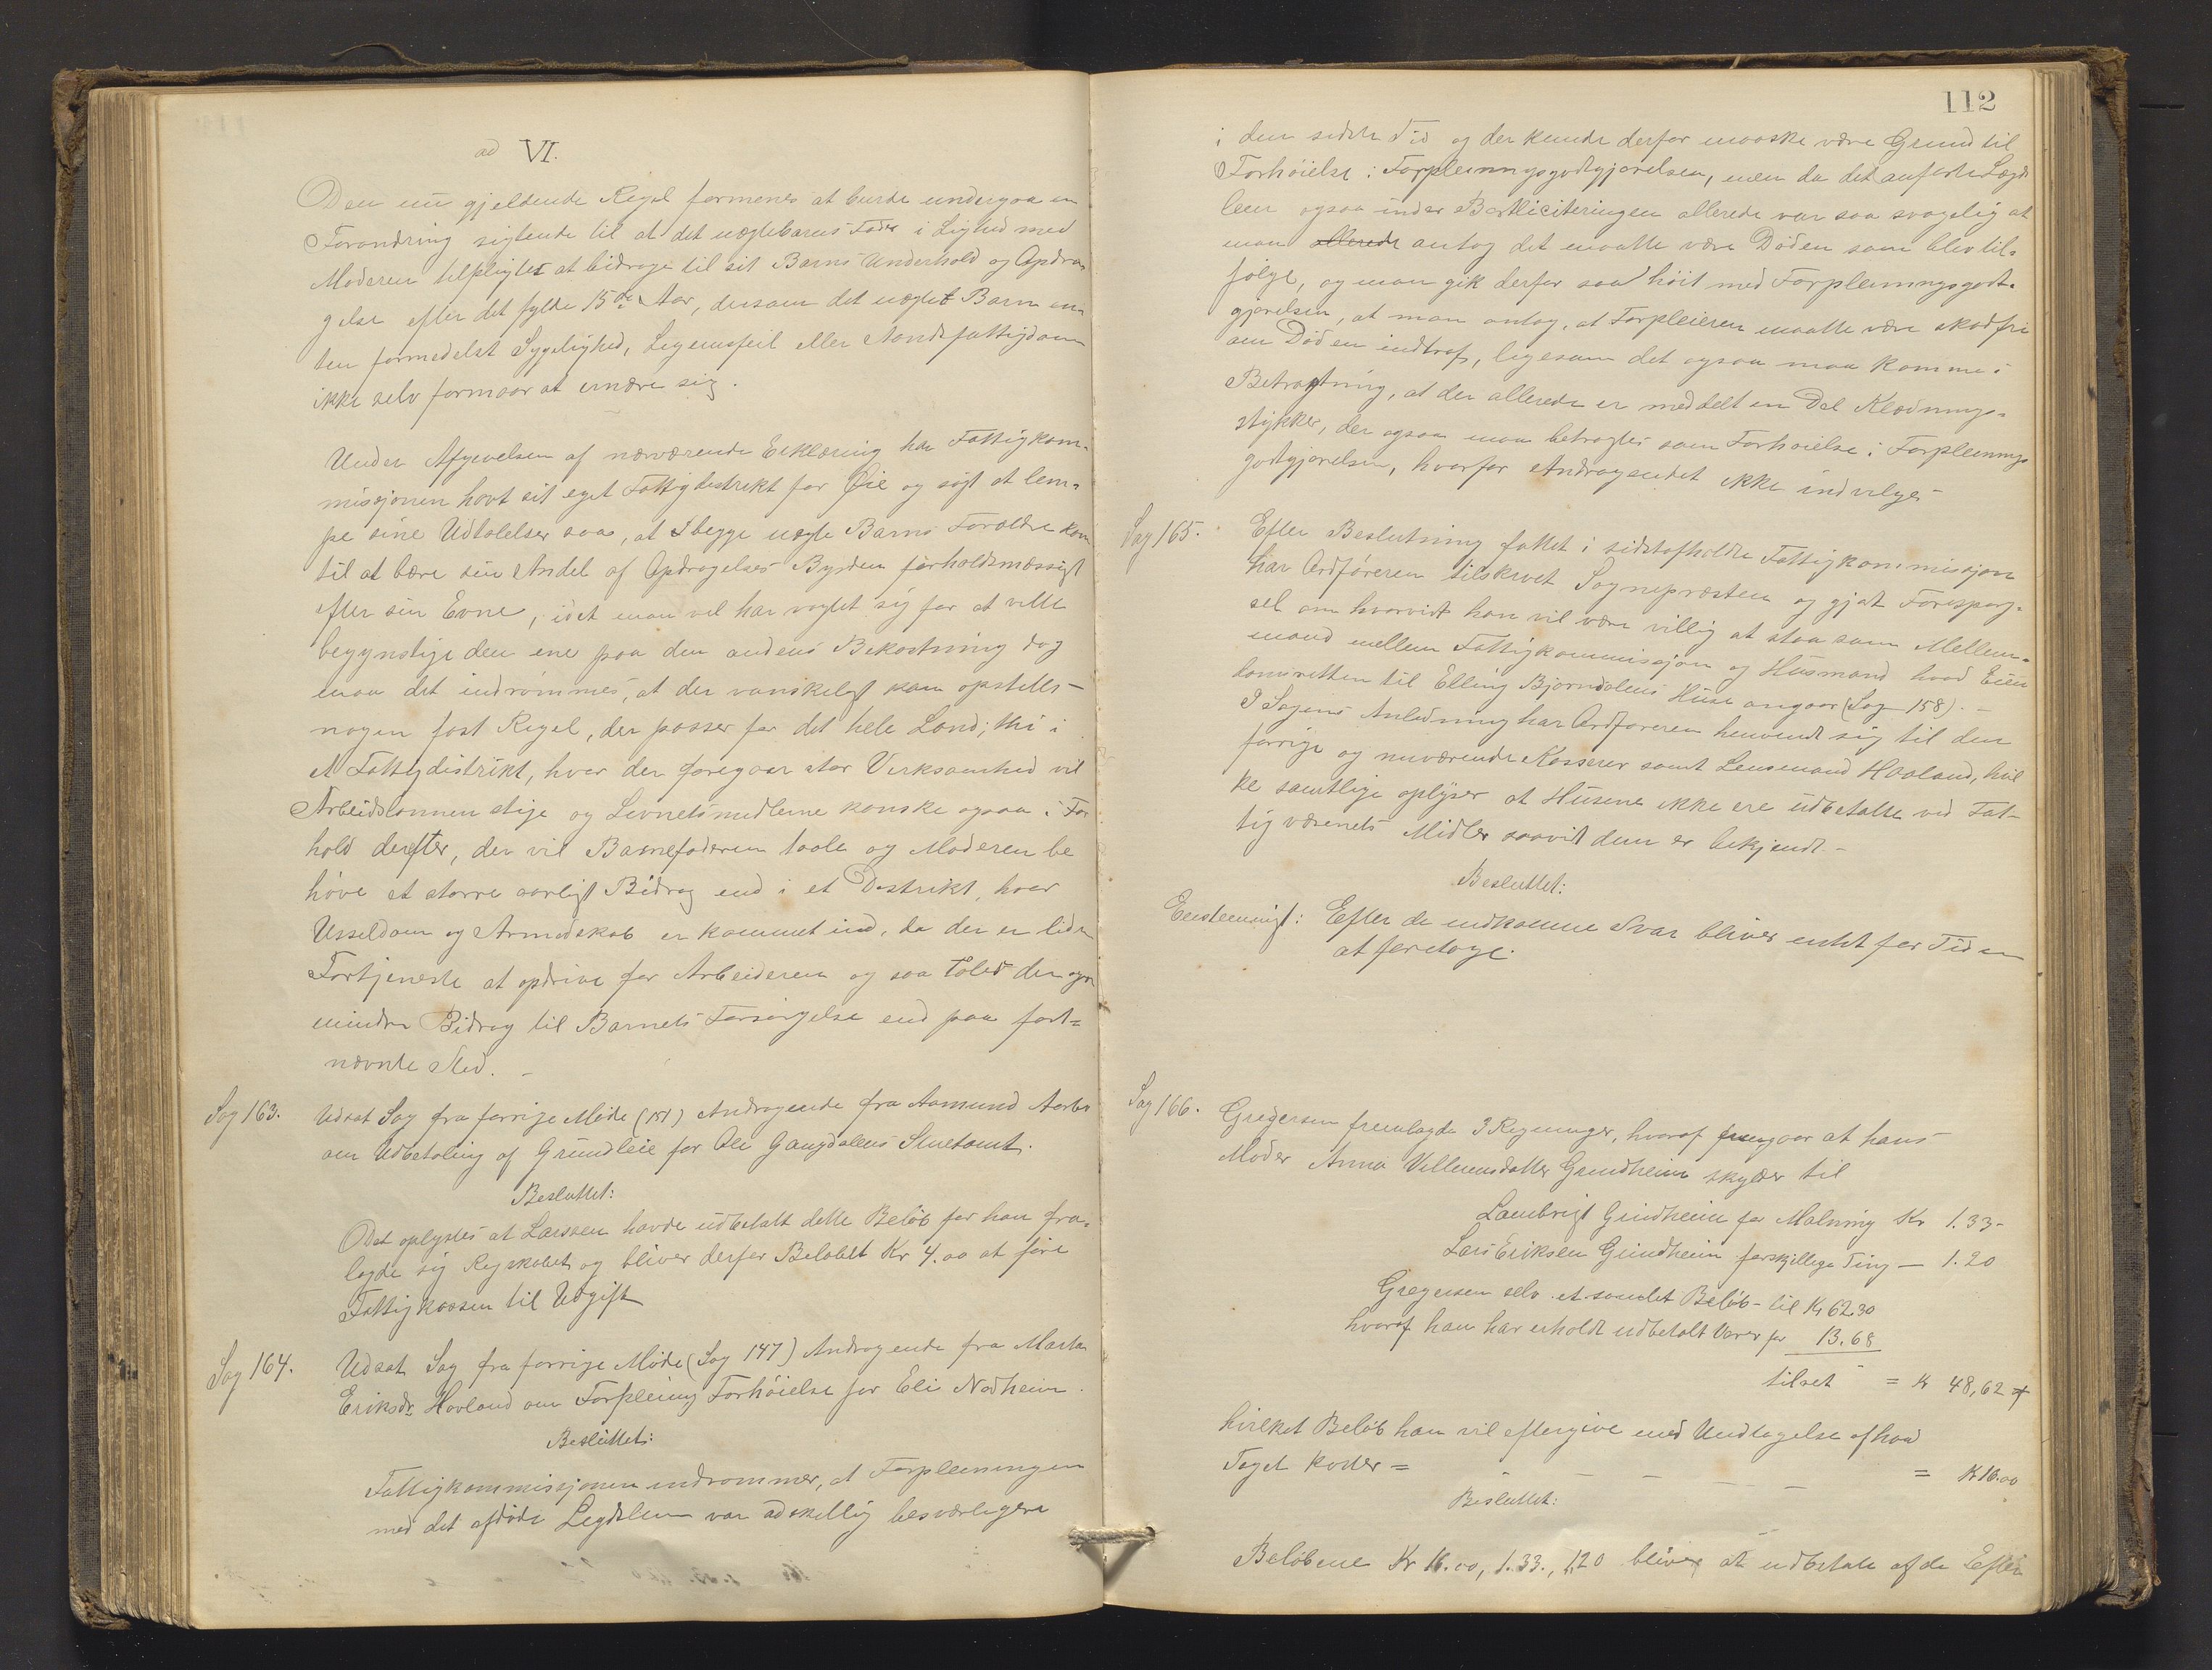 ad VI.
Den nu gjeldende Regel formenes at burde undergaa en
Forandring sigtende til at det uægtebarns Fader i Lighed med
Moderen tilpligtes at bidrage til sit Barns Underhold og Opdra-
gelse efter det fylte 15de Aar, dersom det uægte Barn en-
ten formedelst Sygelighed, Legemsfeil eller Aandsfattigdom
ikke selv formaar at ernære sig.
Under Afgivelsen af nærværende Erklæring har Fattigkom-
missjonen havt sit eget Fattigdistrikt for Øie og søgt at lem-
pe sine Udtalelser saa, at begge uægte Barns Forældre kom
til at bære sin Andel af Opdragelses Byrden forholdsmæssigt
efter sin Evne, idet man vel har vogtet sig for at ville
begynstige den ene paa den andens Bekostning dog
maa det indrømmes, at der vanskeligt kan opstilles
nogen fast Regel, der passer for det hele Land; thi i
et Fattigdistrikt, hvor der foregaar stor Virksomhed vil
Arbeidslønnen stige og Livnetsmidlerne kanske ogsaa i For
hold derefter, der vil Barnefaderen taale og Moderen be
høve et større aarligt Bidrag end i et Distrikt, hvor
Usseldom og Armodskab er kommet ind, da der er liden
Fortjeneste at opdrive for Arbeideren og saa taales der ogsaa
mindre Bidrag til Barnets Forsørgelse end paa først-
nævnte Sted. -
Sag 163. Udsat Sag fra forrige Møde (151) Andragende fra Aamund Aarbø
om Udbetaling af Grundleie for Ole Gangdalens Stuetomt.
Besluttet:
Det oplystes at Larssen havde udbetalt dette Beløb før han fra-
lagde sig Regskabet og bliver derfor Beløbet Kr 4.00 at føre
Fattigkassen til Udgift
Sag 164. Udsat Sag fra forrige Møde (Sag 147) Andragende fra Marta
Eriksdr. Havland om Forpleining Forhøielse for Eli Nodheim.
Besluttet:
Fattigkommissjonen indrømmer, at Forpleiningen
med det afdøde Legdslem var adskillig besværligere
112
i den sidste Tid og der kunde derfor maaske være Grund til
Forhøielse i Forpleiningsgodtgjørelsen, men da det anførte Legds
lem ogsaa under Bortliciteringen allerede var saa svagelig at
man allerede antog det maatte være Døden som blev til-
følge, og man gik derfor saa høit med Forpleiningsgodt-
gjørelsen, at man antog, at Forpleieren maatte være skadfri
om Døden indtraf, ligesom det ogsaa maa komme i
Betragtning, at der allerede er meddelt en Del Klædnings-
stykker, der ogsaa maa betragtes som Forhøielse i Forpleinings
godtgjørelsen, hvorfor Andragendet ikke indvilges -
Sag 165. Efter Beslutning fattet i sidstafholdte Fattigkommissjon
har Ordføreren tilskrevet Sognepræsten og gjort Forespørg-
sel om hvorvidt han vil være villig at staa som Mellem-
mand mellem Fattigkommissjon og Husmand hvad Eien
domsretten til Elling Bjørndalens Huse angaar (Sag 158). -
I Sagens Anledning har Ordføreren henvendt sig til den
forrige og nuværende Kasserer samt Lensmand Havland, hvil
ke samtlige oplyser at Husene ikke ere udbetalte ved Fat-
tigvæsenets Midler saavidt dem er bekjendt. -
Besluttet:
Eenstemmigt: Efter de indkomne Svar bliver intet for Tiden
at foretage.
Sag 166. Gregersen fremlagde 3 Regninger, hvoraf fremgaar at hans
Moder Anna Villumsdatter Grindheim skylder til
Lambrigt Grindheim for Malning Kr 1.33 -
Lars Eriksen Grindheim forskjellige Ting — 1.20
Gregersen selv et samlet Beløb - til Kr 62.30
hvoraf han har erholdt udbetalt Varer for 13.68
tilset = Kr 48,62
hvilket Beløb han vil eftergive med Undtagelse af hvad
Taget koster = - - - - - = Kr 16.00
Besluttet:
Beløbene Kr 16.00, 1.33., 1.20 bliver at udbetale af de Efter